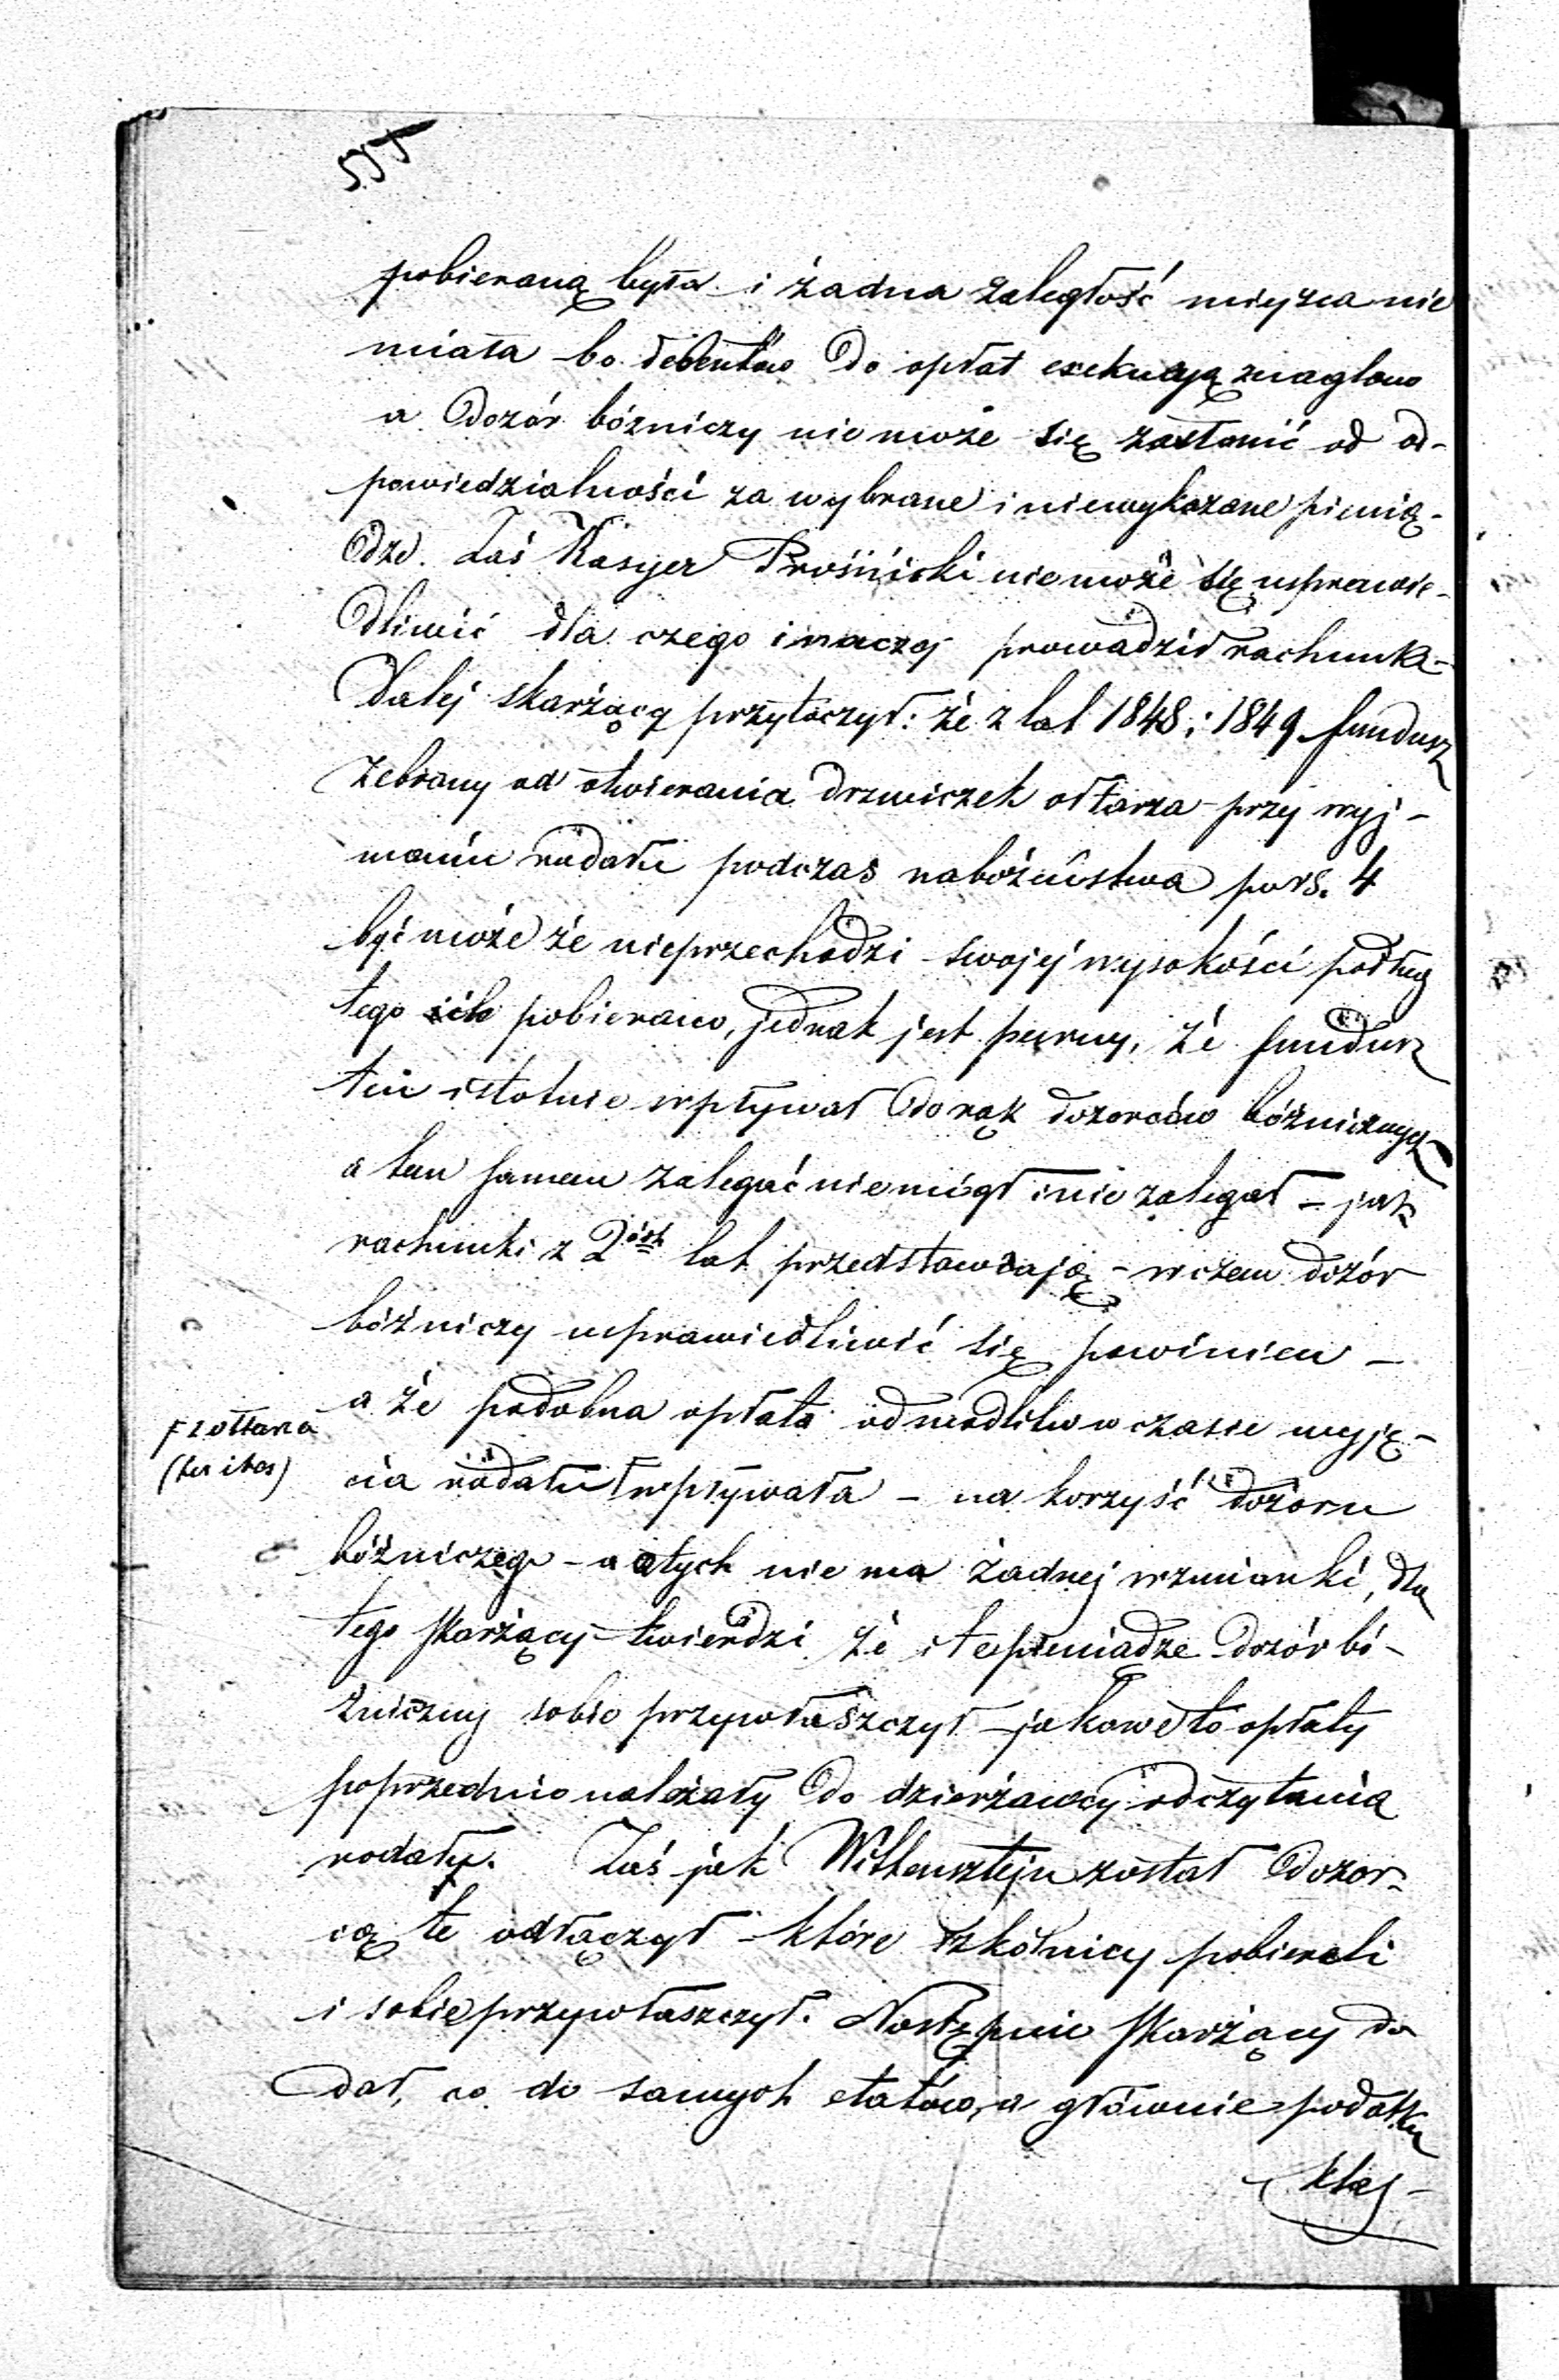 pobieraną była i żadna zaległość miejsca nie
miała bo debentów do opłat exekucyą znaglono
a Dozór bóżniczy nie może się zasłonić od od-
powiedzialności za wybrane i niewykazane pienią-
dze. Zaś Kasyer Prośnicki nie może się usprawie-
dliwić dla czego inaczej prowadził rachunki-
Dalej skarżący przytoczył: że z lat 1848 i 1849 fundusz
zebrany od otwierania drzwiczek ołtarza przy wyj-
maniu rodału podczas nabożeństwa po rs. 4
być może że nieprzechodzi swojej wysokości podług
tego ich pobierano, jednak jest pewny, że fundusz
ten istotnie wpływał do rąk dozorców bóżniczych
a tem samem zalegać nie mógł i nie zalegał – jak
rachunki z 2óch lat przedstawiają – w czem dozór
bóżniczy usprawiedliwić się powinien –
a że podobna opłata od modlitw w czasie wyję-
cia rodału Γ wpływała – na korzyść dozoru
Γ z ołtarza
bóżniczego – a o tych nie ma żadnej wzmianki, dla
tego skarżący twierdzi że i te pieniądze dozór bó-
żniczny sobie przywłaszczył – jakowe to opłaty
poprzednio należały do dzierżawcy odczytania
rodału. Zaś jak Wittensztejn został dozor-
cą te odłączył – które szkólnicy pobierali
i sobie przywłaszczył. Następnie skarżący do
dał, co do samych etatów, a głównie podatku
klas-